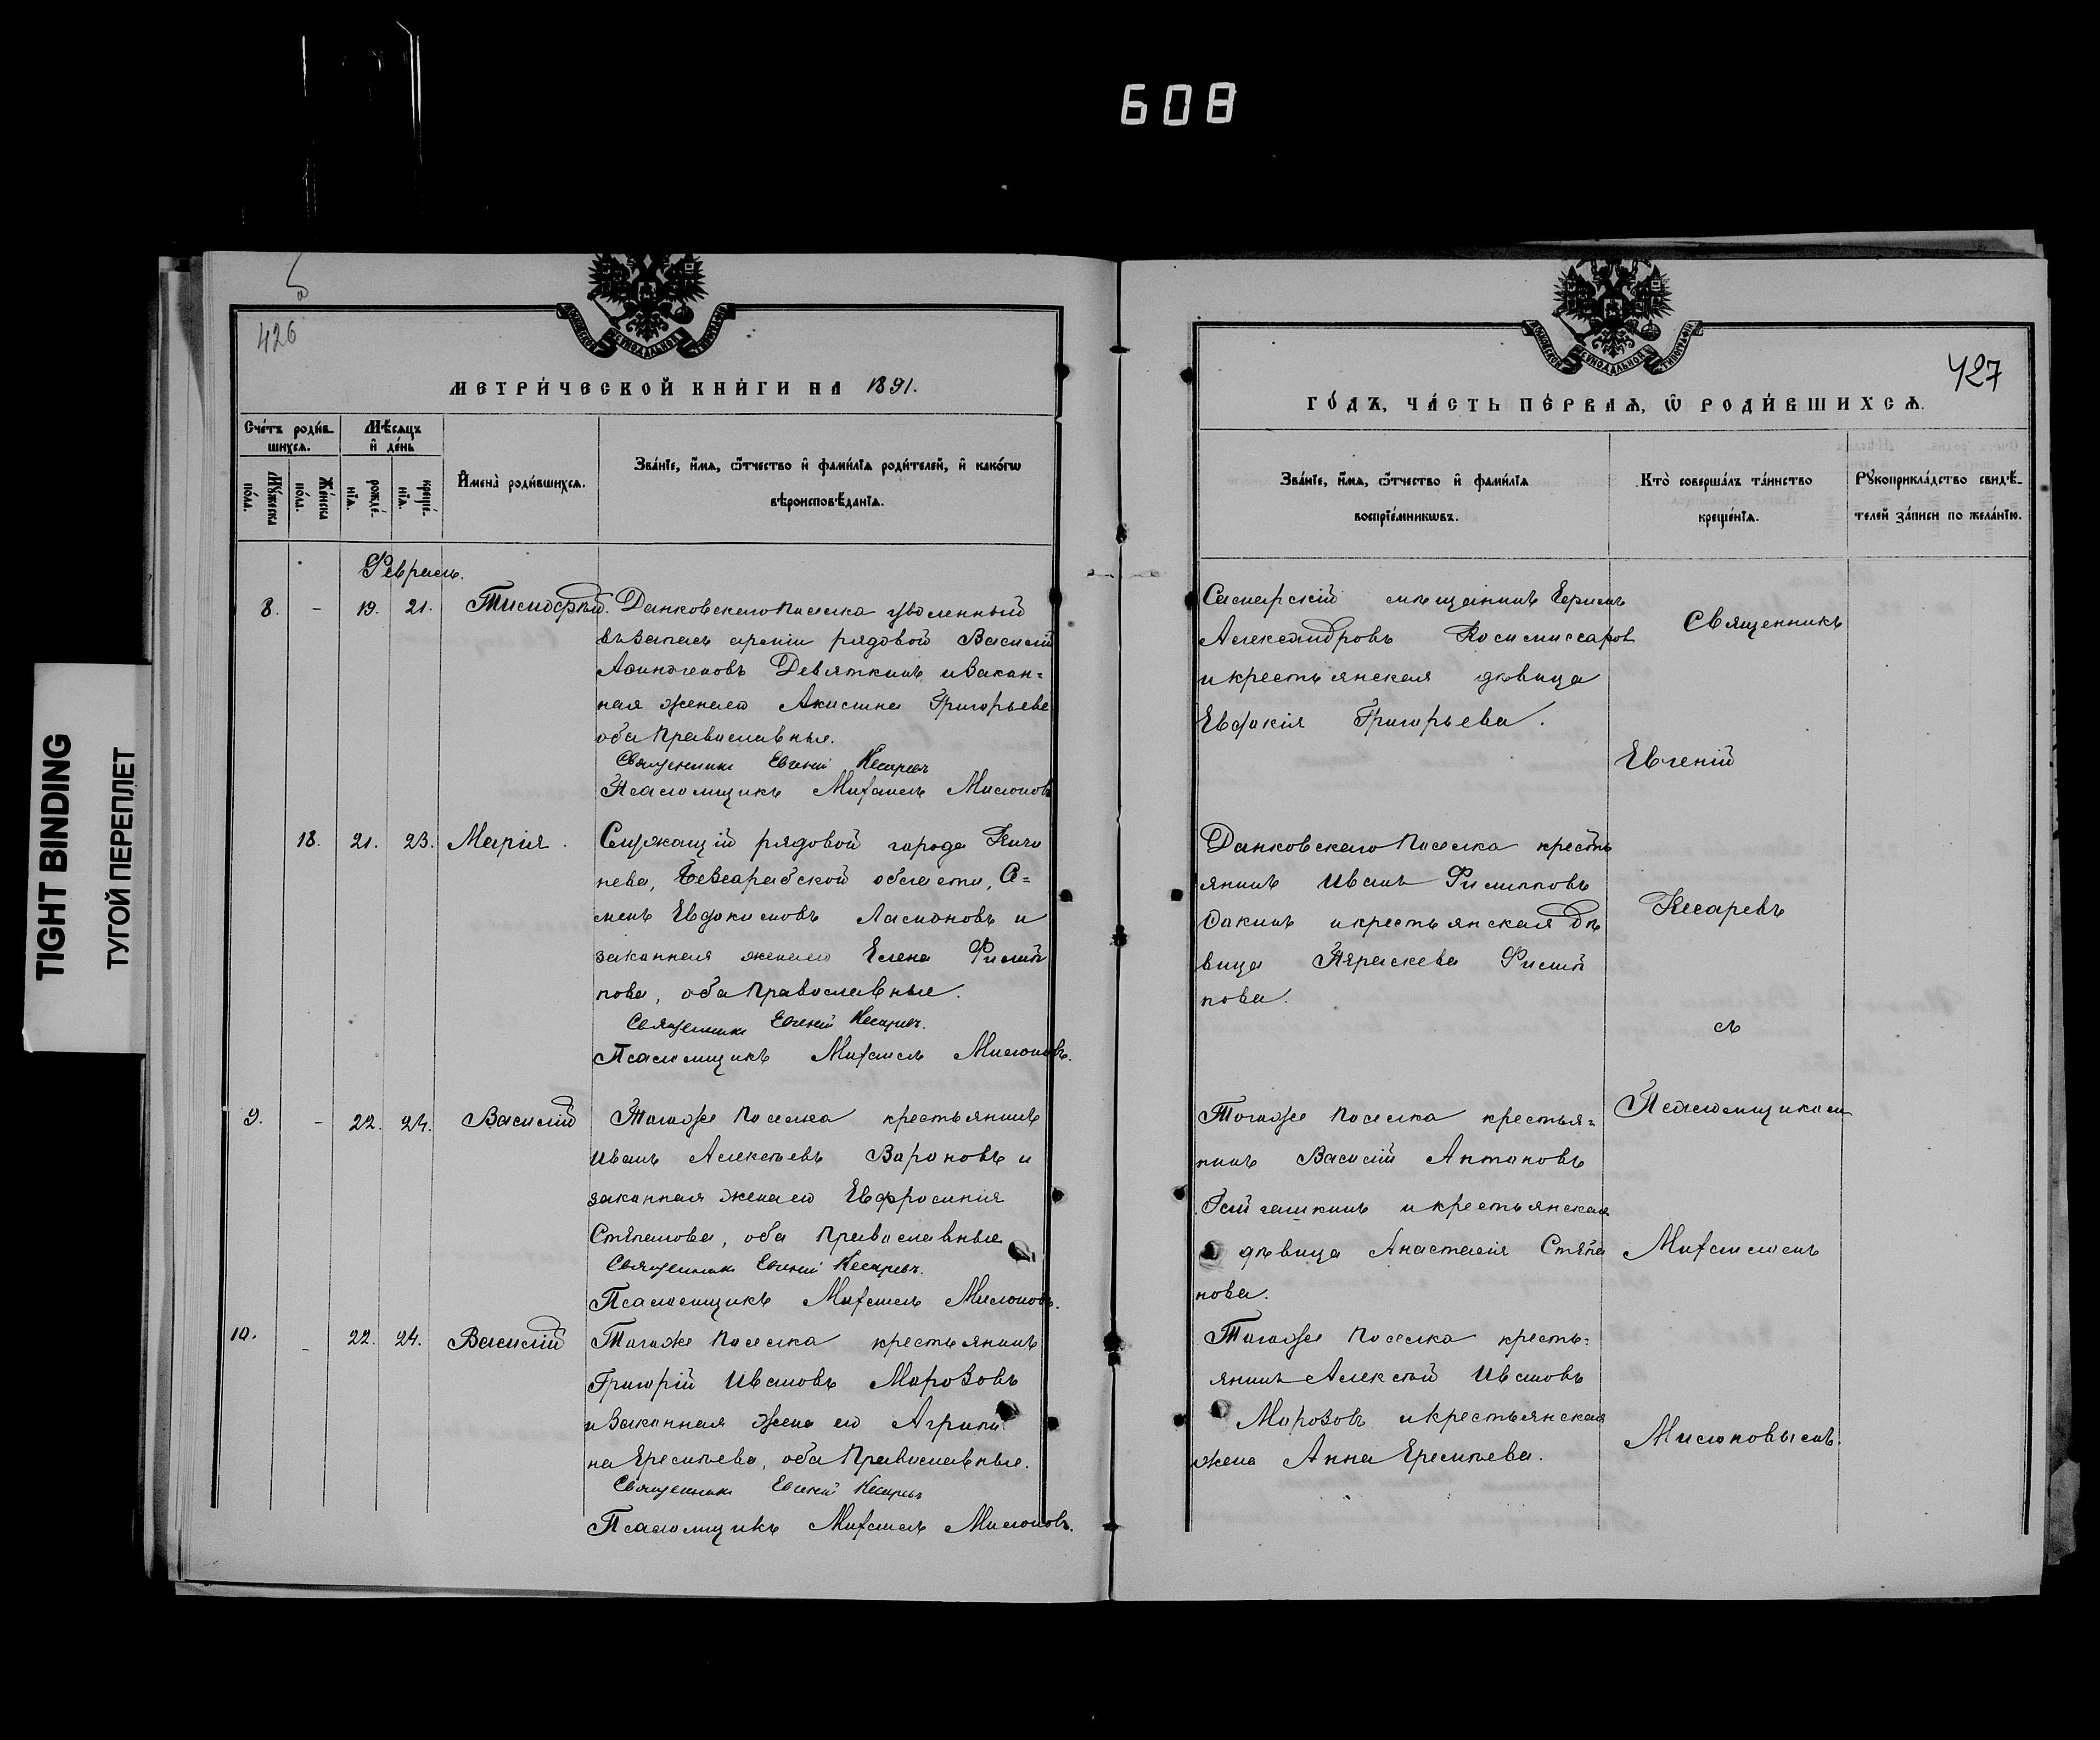 608
TIGHT BINDING
ТУГОЙ ПЕРЕПЛЕТ
426
МЕТРИ́ЧЕСКОЙ КНИ́ГИ НА 1891.
Сче́тъ роди́в-
шихся.
Мѣ́сяцъ
и҆ де́нь
Мꙋ́жеска по́ла.
Же́нска по́ла.
рожде́-нїѧ.
креще́-нїѧ.
И҆мена̀ роди́вшихсѧ.
Зва́нїе, и҆́мѧ, ѻ҆́тчество и҆ фами́лїѧ роди́телей, и҆ како́гѡ
вѣроисповѣ́данїѧ.
Февраль.
8. - 19. 21. Тимофѣй. Данковскаго поселка уволенный
въ запасъ арміи рядовой Василій
Афиногеновъ Девяткинъ и закон=
ная жена его Акилина Григорьева
оба православные.
Священникъ Евгеній Кесаревъ
Псаломщикъ Михаилъ Милоновъ
18. 21. 23. Марія. Служащій рядовой города Киши
нева, Бессарабской области, Се=
менъ Евдокимовъ и
законная жена его Елена Филип
пова, оба православные.
Священникъ Евгеній Кесаревъ.
Псаломщикъ Михаилъ Милоновъ.
9. - 22. 24. Василій Тогоже поселка крестьянинъ
Иванъ Алексѣевъ Вороновъ и
законная жена его Евфросинія
Степанова, оба православные
Священникъ Евгеній Кесаревъ.
Псаломщикъ Михаилъ Милоновъ.
10. - 22. 24. Василій Тогоже поселка крестьянинъ
Григорій Ивановъ Морозовъ
и законная жена его Агрипи
на Еремѣева, оба православные.
Священникъ Евгеній Кесаревъ
Псаломщикъ Михаилъ Милоновъ.
427
ГО́ДЪ, ЧА́СТЬ ПЕ́РВАѦ, Ѡ҆ РОДИ́ВШИХСѦ.
Зва́нїе, и҆́мѧ, ѻ҆́тчество и҆ фами́лїѧ
воспрїе́мникѡвъ.
Кто̀ соверша́лъ та́инство
креще́нїѧ.
Рꙋкоприкла́дство свидѣ́-
телей за́писи по жела́нїю.
Самарскій мѣщанинъ
Александровъ Коммиссаров
и крестьянская дѣвица
Евдокія Григорьева.
Данковскаго поселка кресть
янинъ Иванъ Филипповъ
и крестьянская дѣ
вица Параскева Филип
пова.
Тогоже поселка крестья=
нинъ Василій Антоновъ
и крестьянская
дѣвица Анастасія Степа
нова.
Тогоже поселка кресть=
янинъ Алексѣй Ивановъ
Морозовъ и крестьянская
жена Анна Еремѣева.
Священникъ
Евгеній
Кесаревъ
съ
Псаломщикомъ
Михаиломъ
Милоновымъ.